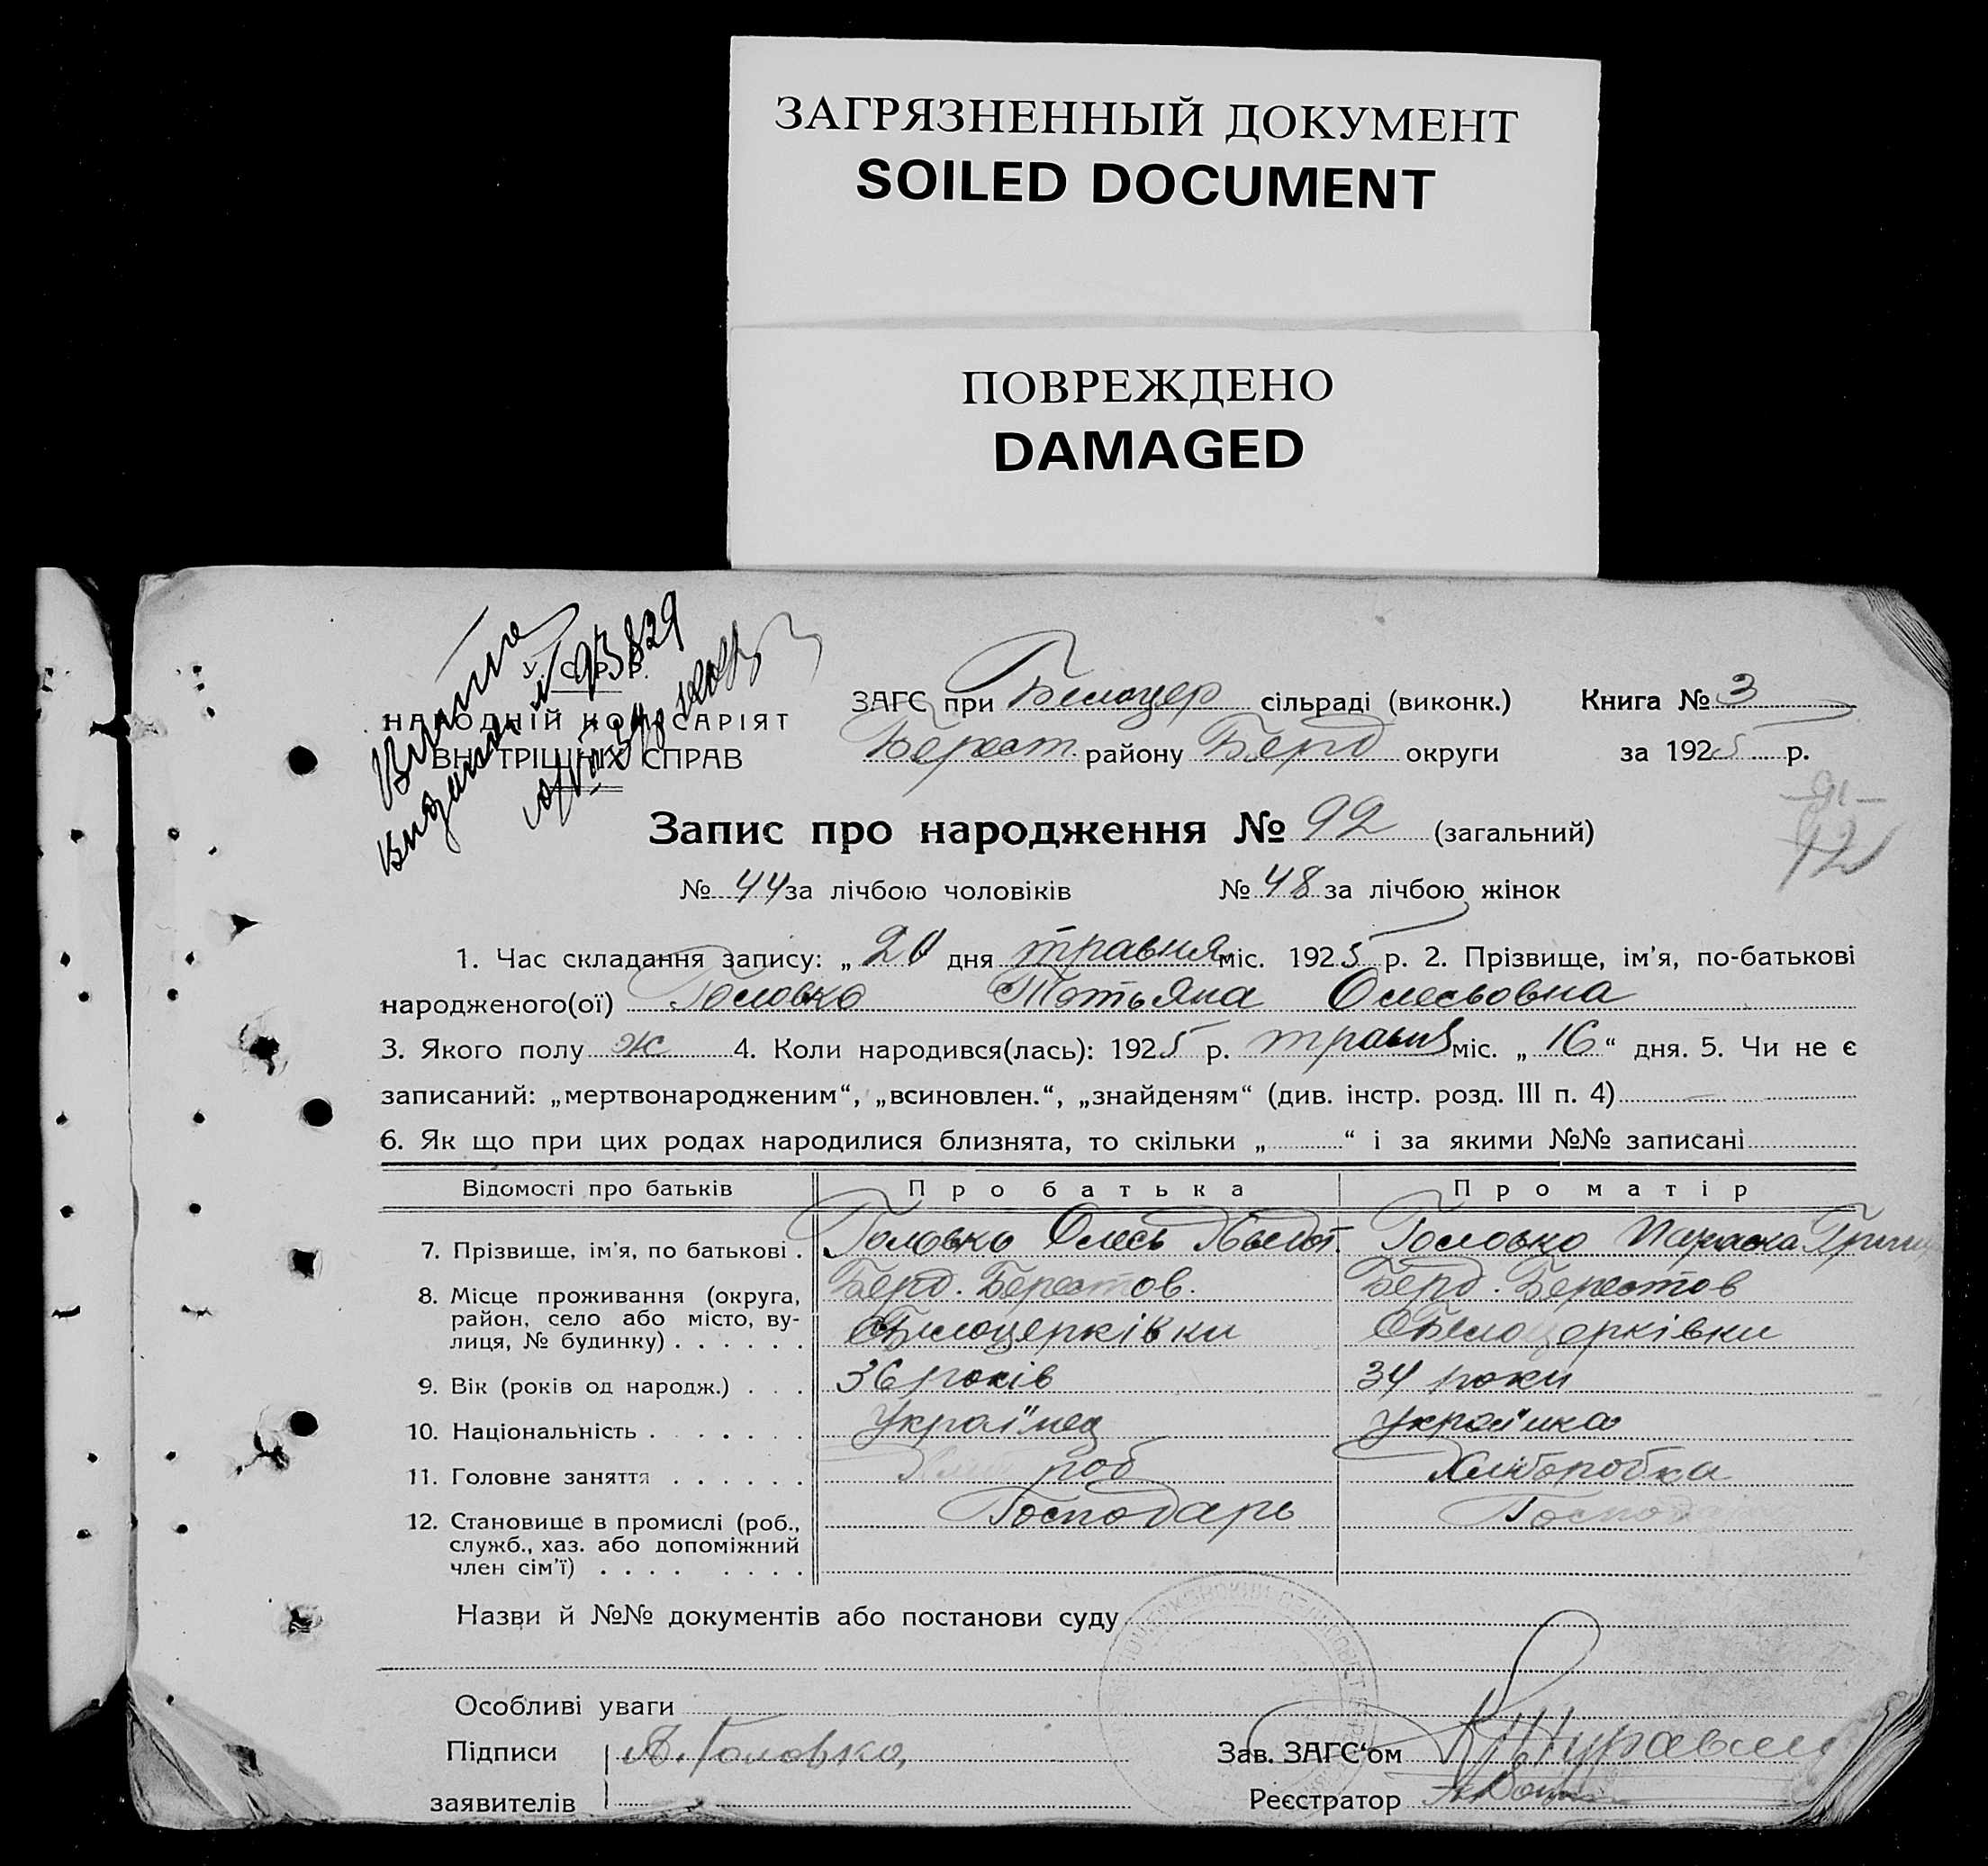 ЗАГРЯЗНЕННЫЙ ДОКУМЕНТ
SOILED DOCUMENT
ПОВРЕЖДЕНО
DAMAGED
У. С. Р. Р.
НАРОДНІЙ КОМІСАРІЯТ
ВНУТРІШНІХ СПРАВ
ЗАГС при Билоцер сільраді (виконк.) Книга № 3
Берест. району Берд округи за 1925 р.
Запис про народження № 92 (загальний)
№ 44 за лічбою чоловіків № 48 за лічбою жінок
1. Час складання запису: „ 20 дня травня міс. 1925 р. 2. Прізвище, ім'я, по-батькові
народженого(ої) Головко Тотьяна Олесьовна
3. Якого полу ж 4. Коли народився(лась): 1925 р. травня міс. „ 16 “ дня. 5. Чи не є
записаний: „мертвонародженим“, „всиновлен.“, „знайденям“ (див. інстр. розд. III п. 4)
6. Як що при цих родах народилися близнята, то скільки „ “ і за якими №№ записані
Відомості про батьків Про батька Про матір
7. Прізвище, ім'я, по батькові . Головко Олесь Головко Параска
8. Місце проживання (округа, Берд. Берестов. Берд. Берестов
район, село або місто, ву-
лиця, № будинку) . . . . . . Билоцерківки Билоцерківки
9. Вік (років од народж.) . . . 36 років 34 роки
10. Національність . . . . . . . Україنец Українка
11. Головне заняття . . . . . . роб Хлиборобка
12. Становище в промислі (роб., Господарь Господар
служб., хаз. або допоміжний
член сім'ї) . . . . . . . .
Назви й №№ документів або постанови суду
Особливі уваги
Підписи А. Головко, Зав. ЗАГС'ом
заявителів Реєстратор